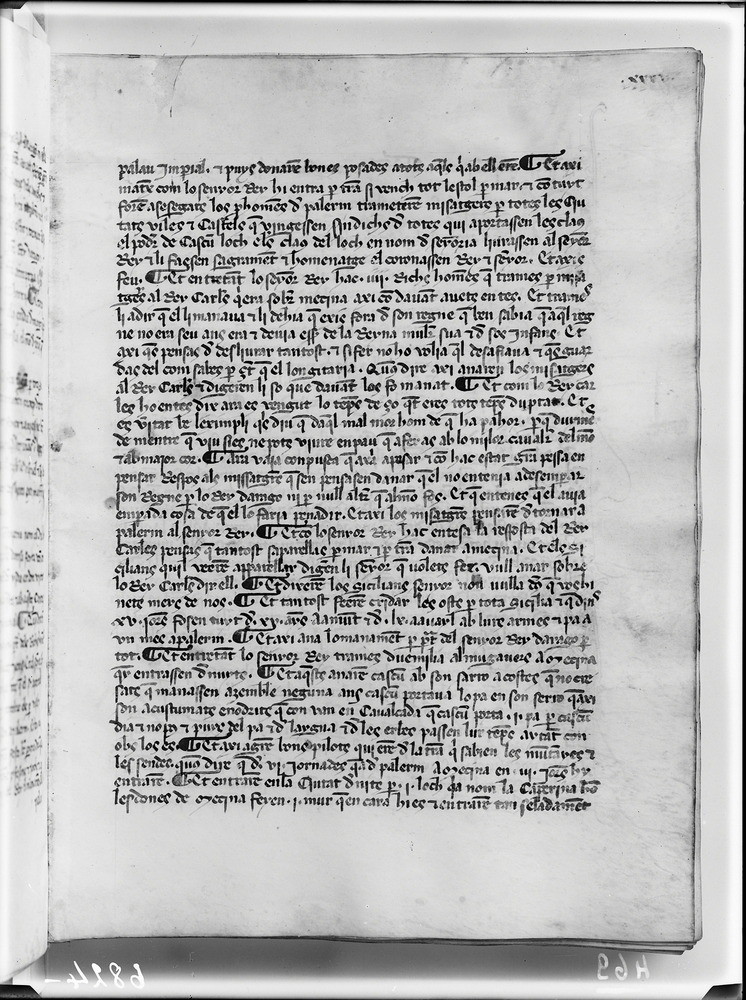 palau Imperial. ⁊ puys donarē bones posades a tots aq̄ls q̄ ab ell erē. Et axi
mateix com lo senyor Rey hi entra ꝑ t̄ra si vench tot lestol ꝑ mar. ⁊ cō tuyt
forē asesegats los ꝓhomēs d̄ palerm trameterē misatgers ꝑ totes les Ciu
tats viles ⁊ Castells q̄ vingessen sindichs d̄ totes qui aportassen les claus
el poder de Cascū loch e les claus del loch en nom d̄ senyoria liurassen al senyor
Rey ⁊ li faessen sagramēt ⁊ homenatge el coronassen Rey ⁊ senyor. Et axis
feu. Et entretāt lo senyor Rey hac .iiii. Richs homēs q̄ trames ꝑ missa
tgers al Rey Carles q̄ era sobre mecina axi cō dauāt auets entes. Et trames
li a dir q̄ ell manaua ⁊ li dehia q̄ exis fora d̄ son regne q̄ ben sabia q̄ aq̄l reg
ne no era seu ans era ⁊ deuia esser de la Reyna muller sua ⁊ d̄ sos Infans. Et
axi que pensas d̄ desliurar tantost. ⁊ si fer no ho volia q̄l desafiaua ⁊ q̄s guar
das del com sabes ꝑ cert q̄ el lon gitaria. Que us dire axi anaren los misatgers
al Rey Carles ⁊ digeren li so que dauāt los fo manat. Et com lo Rey Car
les ho entes dix ara es vengut lo temps de ço qt̄ eres tots temps duptat. Et
es veritat be leximpli q̄s diu q̄ daq̄l mal mor hom de q̄ ha pahor. ꝑ q̄ duymes
de mentre q̄ viu sies ne pots viure en pau q̄ afer as ab lo milor caualler del mō
⁊ ab major cor. Ara vaja con pusca q̄ axi a passar ⁊ cō hac estat gran pessa en
pensar Respos als missatgers q̄ sen pensasen danar q̄ el no entenia a desemparar
son Regne ꝑ lo Rey darago ni ꝑ null altre q̄ al mon fos. Et q̄ entenes q̄ el auia
empresa cosa de q̄ el lo faria penadir. Et axi los misatgers pensarē d̄ tornar a
palerm al senyor Rey. Et cō lo senyor Rey hac entesa la resposta del Rey
Carles pensis q̄ tantost saparellas ꝑ mar ⁊ ꝑ t̄ra danar a mecina. Et els Si
cilians quil veerē apparellar digerē li senyor q̄ volets fer. vull anar sobre
lo Rey Carles dix ell. E dixerē los Sicilians senyor no vulla deu q̄ vos hi
anets menys de nos. Et tantost feerē cridar les osts ꝑ tota Sicilia ⁊ q̄ dins
xv. jorns fosen tuyt d̄ .xv. anys a amunt ⁊ d̄ .lx. a auayl ab lurs armes ⁊ pa a
vn mes a palerm. Et axi ana lo manamēt ꝑ part del senyor Rey darago ꝑ
tot. Et entretāt lo senyor Rey trames dues milia almugauers a Mecina
q̄ entrassen d̄ nuyts. Et aquests anarē cascū ab son sarro a costes q̄ no cre
sats q̄ manassen azemble neguna ans cascū portaua lo pa en son serro q̄ axi
son acustumats e nodrits q̄ con van en Caualcada q̄ cascū porta .i. pa ꝑ cascū
dia ⁊ no pus ⁊ puys del pa ⁊ d̄ laygua ⁊ d̄ les erbes passen lur temps aytāt con
obs los es. Et axi agrē bons pilots qui erē d̄ la t̄ra q̄ sabien les muntanyes ⁊
les sendes. que us dire q̄ d̄ .vi. jornades q̄ ha d̄ palerm a Mecina en .iii. jorns hy
entrarē. Et entrarē en la Ciutat d̄ nits ꝑ .i. loch q̄ ha nom la Caperina hō
les dones de Mecina feyen .i. mur q̄ encara hi es ⁊ entrarē tan seladamēt
6824
469